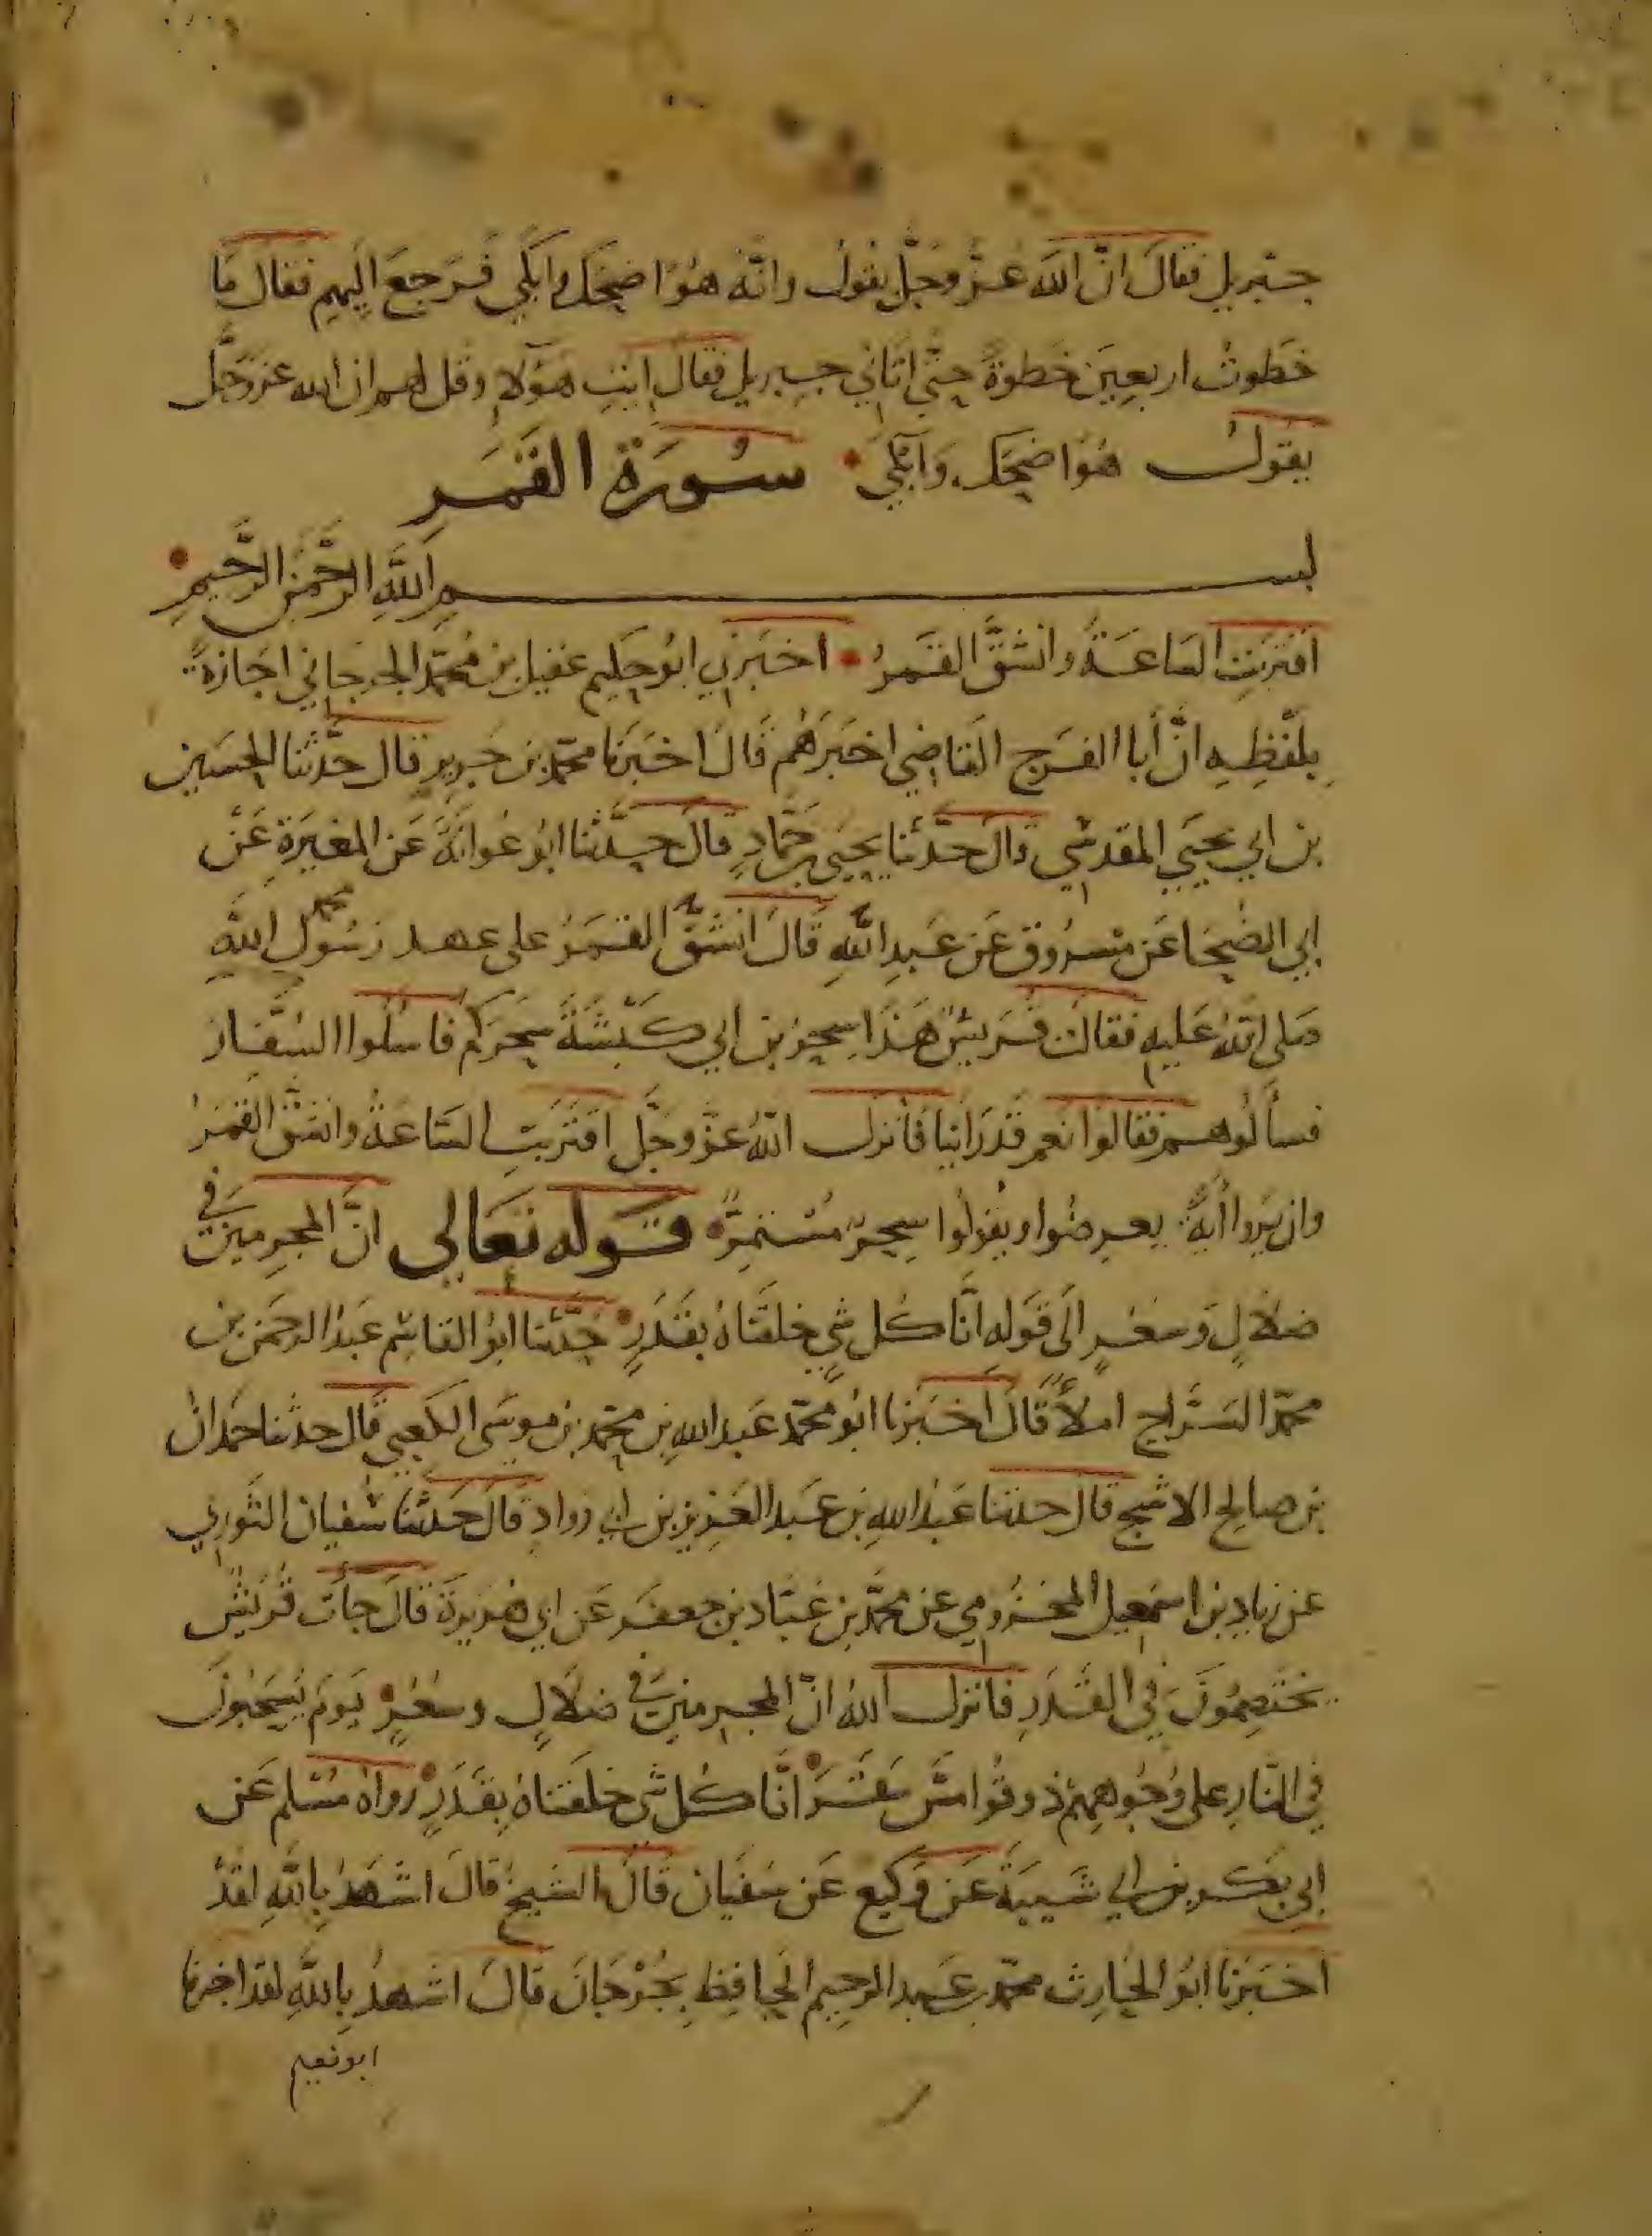 جبريل فقال انّ الله عزّ وجلّ يقول وانّه هوُ اضحك وابكي فرجعَ اليهم فقال مَا
خَطوتُ اربعين خطوةً حتّى اتاني جبريل فقال ايتِ هؤلاءِ وقل لهم ان الله عز وجلّ
يقول هوَ اضحك وابكي سُورَة القمَر
بسم الله الرّحمن الرّحيم
اقتربتِ السَاعَةُ وانشقَّ القمَرُ اخبرني ابو حكيم عقيل بن محمّد الجرجاني اجَازةً
بلفظِهِ انّ أبا الفرج القاضي اخبرهُم قال اخبرنا محمّد بن جرير قال حدّثنا الحسين
بن ابي يحيي المقدسي قال حدّثنا يحيى بن حمّادٍ قال حدّثنا ابو عوانَةَ عن المغيرَةِ عَن
ابي الضحَا عَن مسرُوقٍ عَن عَبدِ اللهِ قال انشقّ القمَرُ على عهد رسُول الله محمد
صلى اللهُ عَليهِ فقالت قريشٌ هَذا سحرُ بن ابي كبشَةَ سحَركم فاسْئلُوا السُّفار
فسألُوهم فقالوا نعم قد رَاينا فانزل اللهُ عزّ وجلّ اقتربتِ السَاعةُ وانشقّ القمَرُ
وان يَروا أيةً يعرضُوا ويقولُوا سِحرٌ مُستمِرّ قوله تعَالى انّ المجرمينَ في
ضلالٍ وسُعُرٍ الَى قوله انّا كُل شيءٍ خلقنَاهُ بقَدَرٍ حدّثنا ابو القاسِم عبدُ الرحمن بن
محمّد السرّاج املاءً قال اخبَرنا ابُو محمّد عَبد الله بن محمّد بن موسَى الكعبي قال حدثنا حمدان
بن صالح الاشج قال حدثنا عَبدُ اللهِ بن عَبد العَزيز بن ابي روادٍ قال حدّثنا سُفيان الثوري
عن زيادِ بن اسمعيل المخزُومي عن محمّد بن عَبّاد بن جعفَر عَن ابي هُريرة قال جأت قُريشٌ
يختصِمُونَ في القَدَرِ فانزل اللهُ انّ المجرمينَ في ضلالٍ وسُعُرٍ يَومَ يُسحَبُونَ
في النّارِ على وُجُوههِم ذوقُوا مَسّ سَقَر انّا كُل شي خلقنَاهُ بقَدَرٍ رواهُ مُسلم عَن
ابي بَكر بن ابي شَيبَة عَن وَكيع عَن سُفيان قال الشيخ قال اشهدُ بِاللهِ لقدْ
اخبَرنا ابُو الحَارث محمّد بن عَبد الرحيم الحَافِظ بجُرْجَان قال اشهدُ بِاللهِ لقد اخبرنا
ابو نعيم